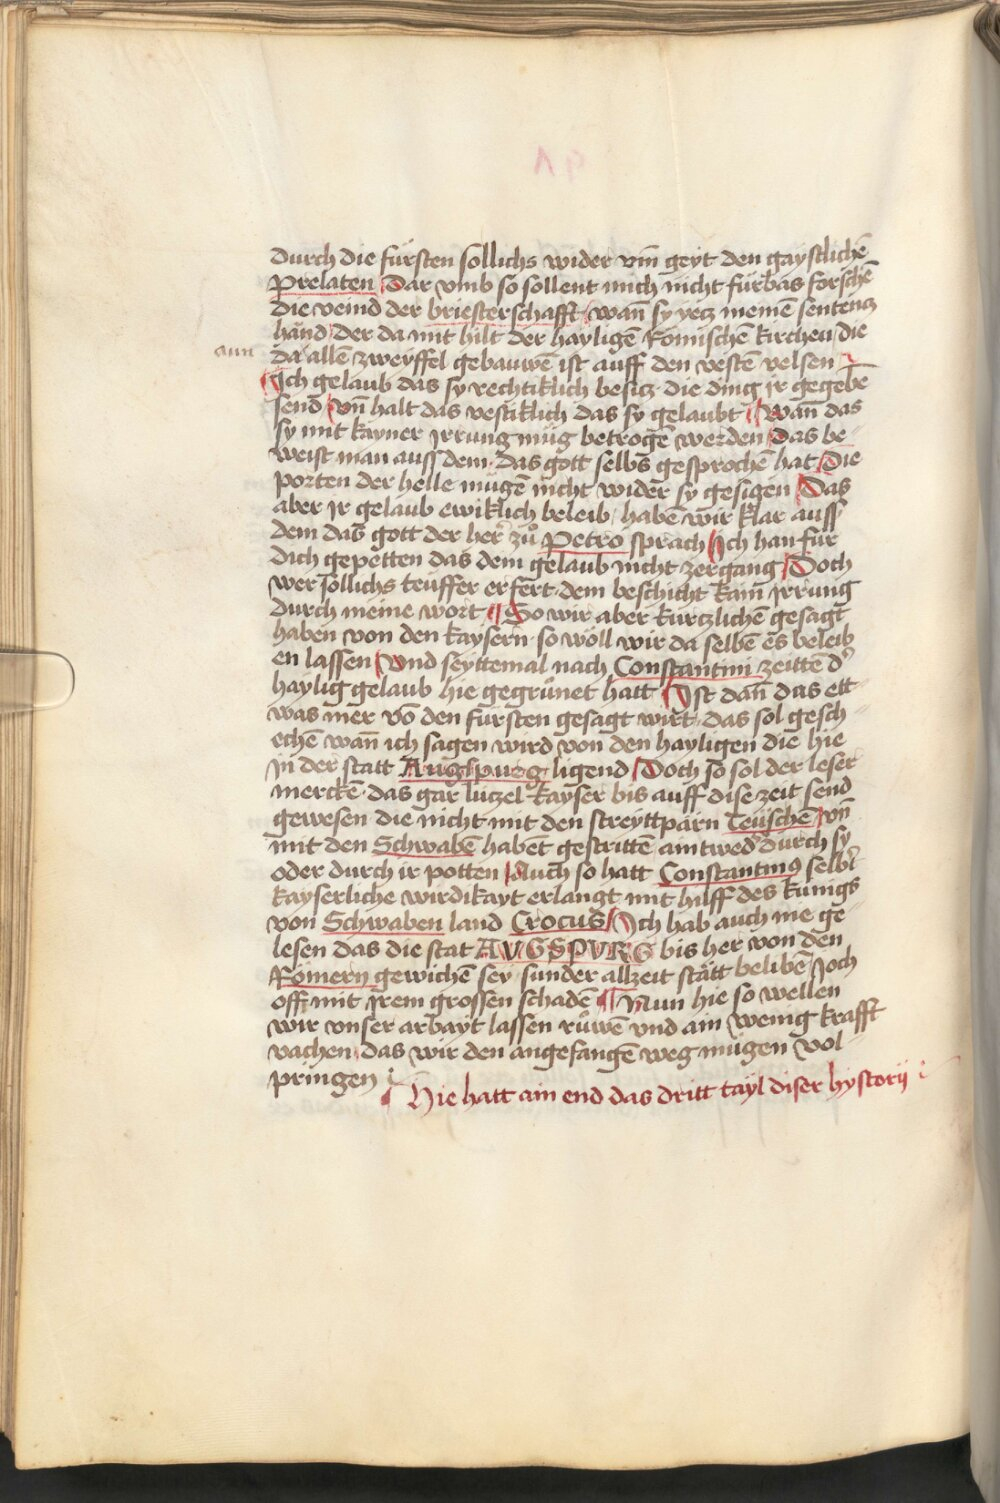 durch die fürsten sollichs wider vm̄ geyt den gaystlichē
Prelaten Dar vmb so sollent mich nicht fürbas forschē
die veind der briesterschafft wan̄ sy yecz meinē sentencz
hānd der da mit hilt der hayligē Romischē kirchen die
aun
da allē zweyffel gebauwē ist auff den vestē velsen
Ich gelaub das sy rechtiklich besicz die ding ir gegebē
send vn̄ halt das vestiklich das sy gelaubt wan̄ das
sy mit kayner Irrung müg betrogē werden Das be
weist man auss dem das gott selbs gesprochē hat Die
porten der helle mügē nicht wider sy gesigen Das
aber ir gelaub ewiklich beleib haben wir klar auss
dem das gott der her zů Petro sprach Ich han für
dich gepetten das dem gelaub nicht zergang Doch
wer sollichs teuffer erfert dem beschicht kain Irrung
durch meine wort So wir aber kurczlichē gesagt
haben von den kaysern so wöll wir da selbē es beleib
en lassen Vnd seyttemal nach Constantini zeittē d'
haylig gelaub hie gegrůnet hatt Ist dan̄ das ett
was mer vō den fürsten gesagt wirt das sol gesch
echē wan̄ ich sagen wird von den hayligen die hie
in der statt Augspurg ligend Doch so sol der leser
merckē das gar lüczel kayser bis auff dise zeit send
gewesen die nicht mit den streyttpärn Teüschē vn̄
mit den Schwabē habēt gestrittē aintwed' durch sy
oder durch ir potten Auch so hatt Constantinus selbs
kayserliche wirdikayt erlangt mit hilff des kunigs
von Schwaben land Crocus Ich hab auch nie ge
lesen das die stat AVGSPVRG bis her von den
Römern gewichē sey sunder allzeit stätt belibē Joch
offt mit irem grossen schadē Nun hie so wellen
wir vnser arbayt lassen růwē vnd ain wenig krafft
vachen das wir den angefangē weg mügen vol
pringen
Hie hatt ain end das dritt tayl diser hystorij